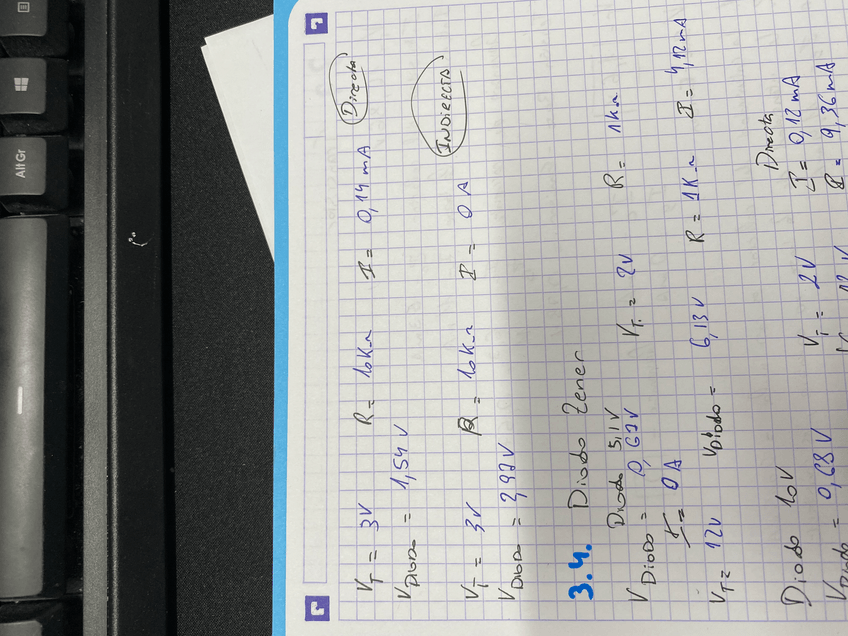 Alt Gr
V_T = 3V R = 10KΩ I = 0,14 mA Directa
V_DIODO = 1,54 V
V_T = 3V R = 10KΩ I = 0 A INDIRECTA
V_DIODO = 2,97V
3.4. Diodo Zener
Diodo 5,1V
V_DIODO = 0,67V V_T = 2V R = 1KΩ
I = 0A
V_T = 12V V_DIODO = 6,13V R = 1KΩ I = 4,12mA
Directa
Diodo 10V V_T = 2V I = 0,12 mA
V_DIODO = 0,68V 12 V = 9,36 mA